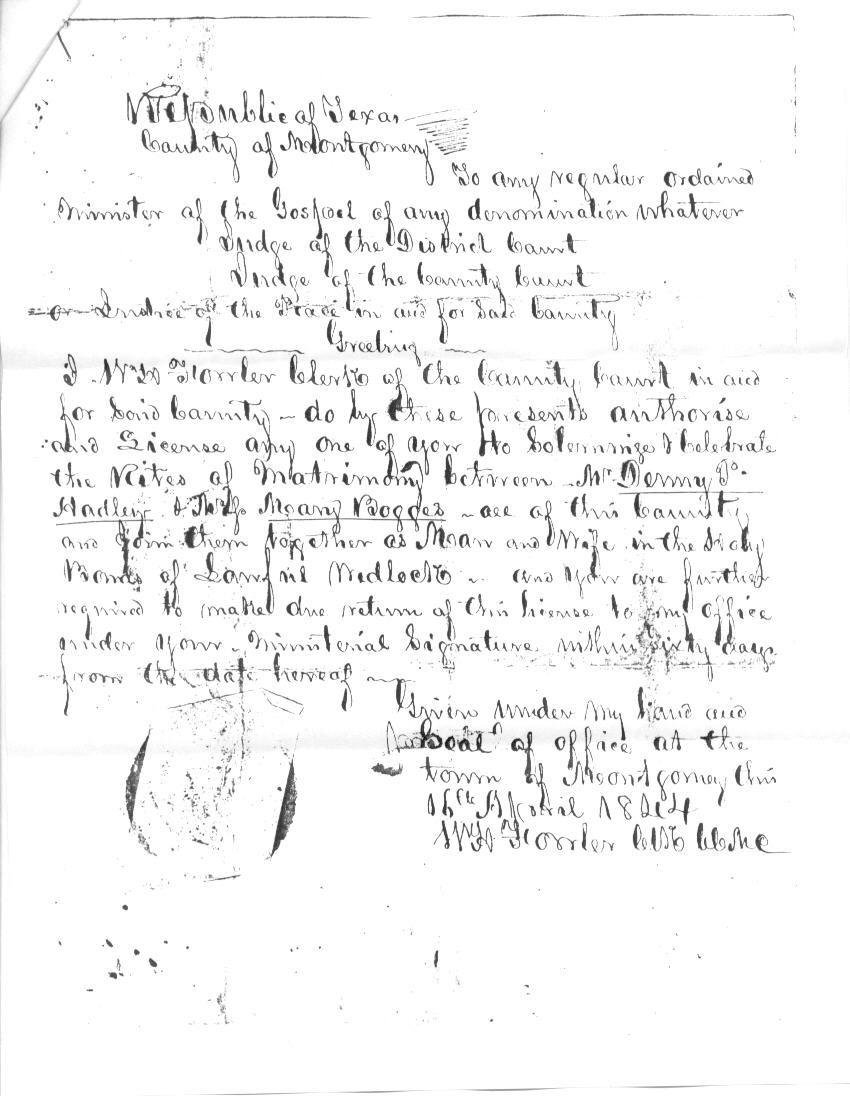 Republic of Texas
County of Montgomery
To any regular ordained
Minister of the Gospel of any denomination whatever
Judge of the District Court
Judge of the County Court
or Justice of the Peace in and for Said County
Greeting
I Wm Fowler Clerk of the County Court in and
for Said County - do by these presents authorise
and License any one of you to Solemnize & Celebrate
the Rites of Matrimony between Mr. Denny P.
Hadley & Mary Bogges - all of this County
and Join them together as Man and Wife in the Holy
Bonds of Lawful Wedlock - and you are further
required to make due return of this License to my office
under your Ministerial Signature within Sixty days
from the date hereof
Given under my hand and
Seal of office at the
town of Montgomery this
16th April 1844
Fowler Clk CCMC